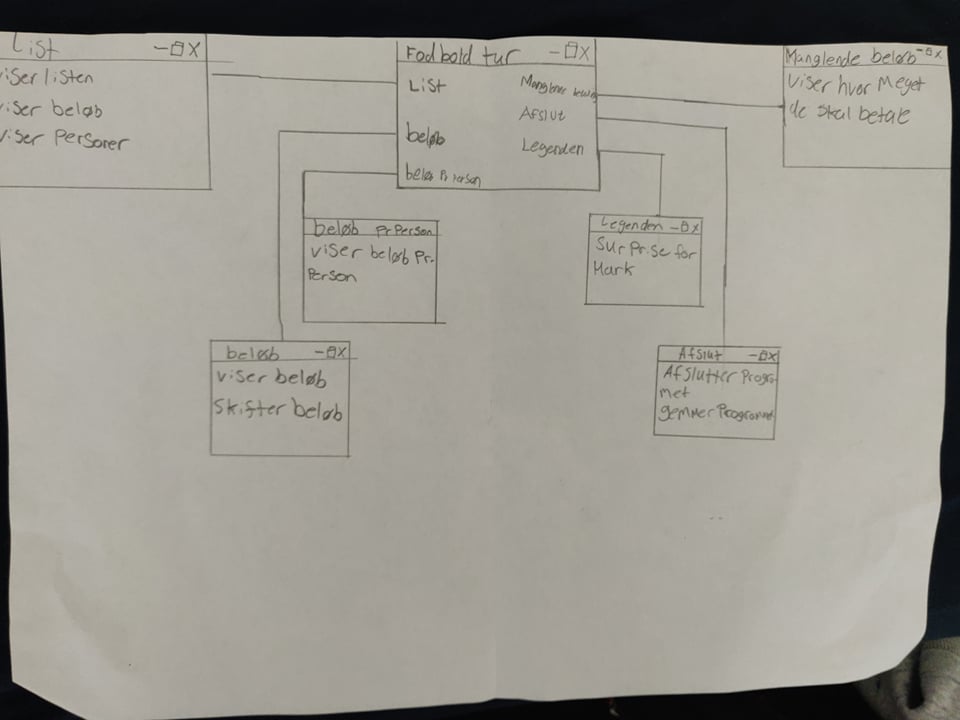 List
viser listen
viser beløb
viser Personer
Fodboldtur
List
beløb
Afslut
Legenden
Manglende beløb
viser hvor meget
de skal betale
beløb PrPerson
viser beløb Pr.
Person
Legenden
SurPrise for
Mark
beløb
viser beløb
Skifter beløb
Afslut
Afslutter Progra
met
gemmer Programmet